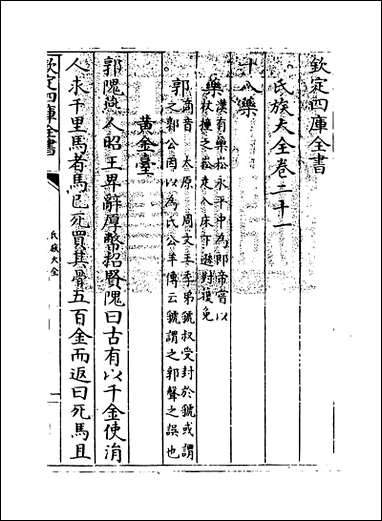 欽定四庫全書
氏族大全卷二十一
十八藥
藥 漢有藥崧永平中為郎帝嘗以
杖撞之崧走入床下遜對獲免
郭 商音 太原 周文王季弟虢叔受封於虢或謂
之郭公因以為氏公羊傳云虢謂之郭聲之誤也
黄金臺
郭隗燕人昭王卑辭厚幣招賢隗曰古有以千金使涓
人求千里馬者馬已死買其骨五百金而返曰死馬且
欽定四庫全書
氏族大全
一